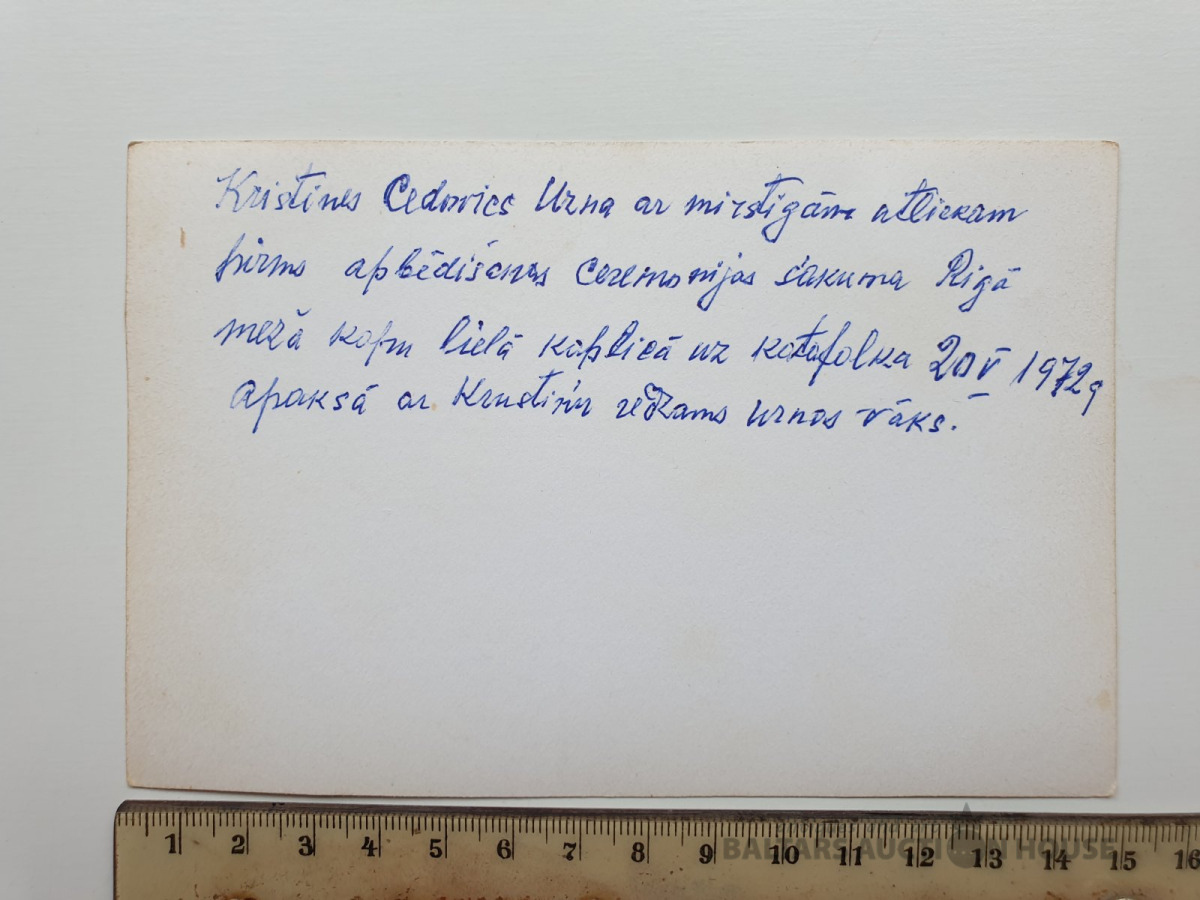 Kristines Cedovics Urna ar mirstīgām atliekam
pirms apbēdišanas Ceremonijas sakuma Rigā
mežā kapu lielā kaplicā uz katafolka 20 V 1972 g
Apaksā ar Krustiņu redzams urnas vāks.
1 2 3 4 5 6 7 8 9 10 11 12 13 14 15 16
BALTARS AUCTION HOUSE